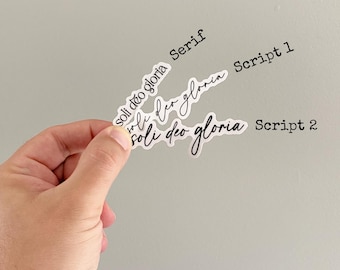 soli deo gloria
Serif
soli deo gloria
Script 1
soli deo gloria
Script 2